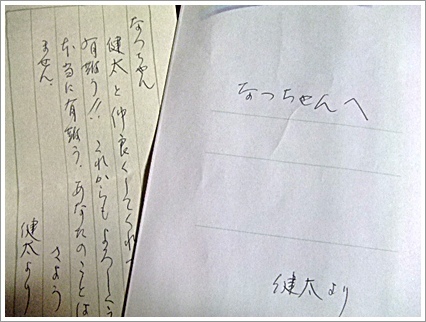 なっちゃん
健太と仲良くしてくれて
有難う!! これからもよろしく
本当に有難う。あなたのことは
ません。
さよう
健太より
なっちゃんへ
健太より